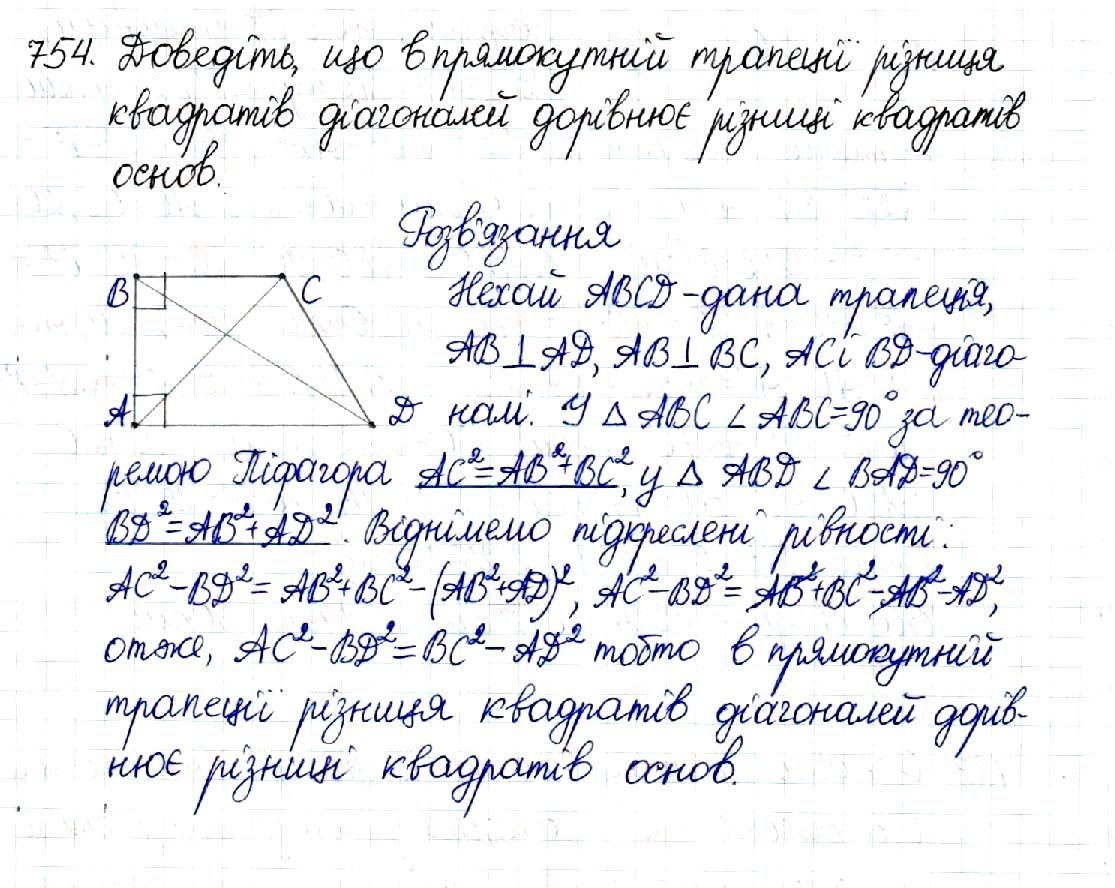 754. Доведіть, що в прямокутній трапеції різниця
квадратів діагоналей дорівнює різниці квадратів
основ.
Розв'язання
B C
A D
Нехай ABCD-дана трапеція,
AB⊥AD, AB⊥BC, AC і BD-діаго-
налі. У △ ABC ∠ ABC=90° за тео-
ремою Піфагора AC²=AB²+BC², у △ ABD ∠ BAD=90°
BD²=AB²+AD². Віднімемо підкреслені рівності:
AC²-BD²=AB²+BC²-(AB²+AD)², AC²-BD²=AB²+BC²-AB²-AD²,
отже, AC²-BD²=BC²-AD² тобто в прямокутній
трапеції різниця квадратів діагоналей дорів-
нює різниці квадратів основ.